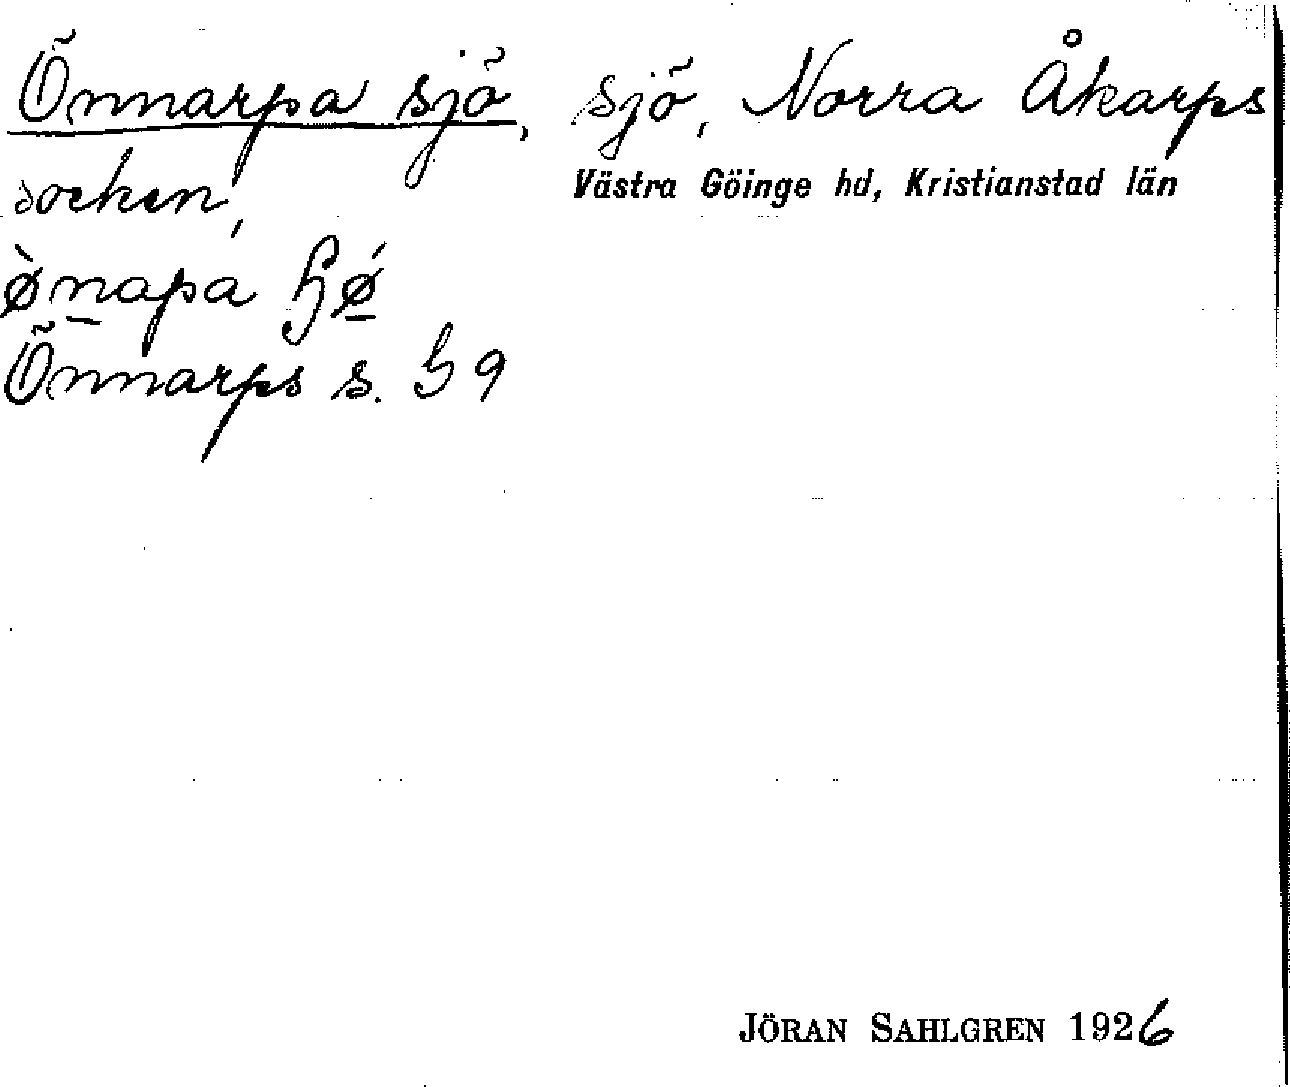 Önnarpa sjö, sjö, Norra Åkarps
socken, Västra Göinge hd, Kristianstad län
Önnarps s. G 9
JÖRAN SAHLGREN 1926